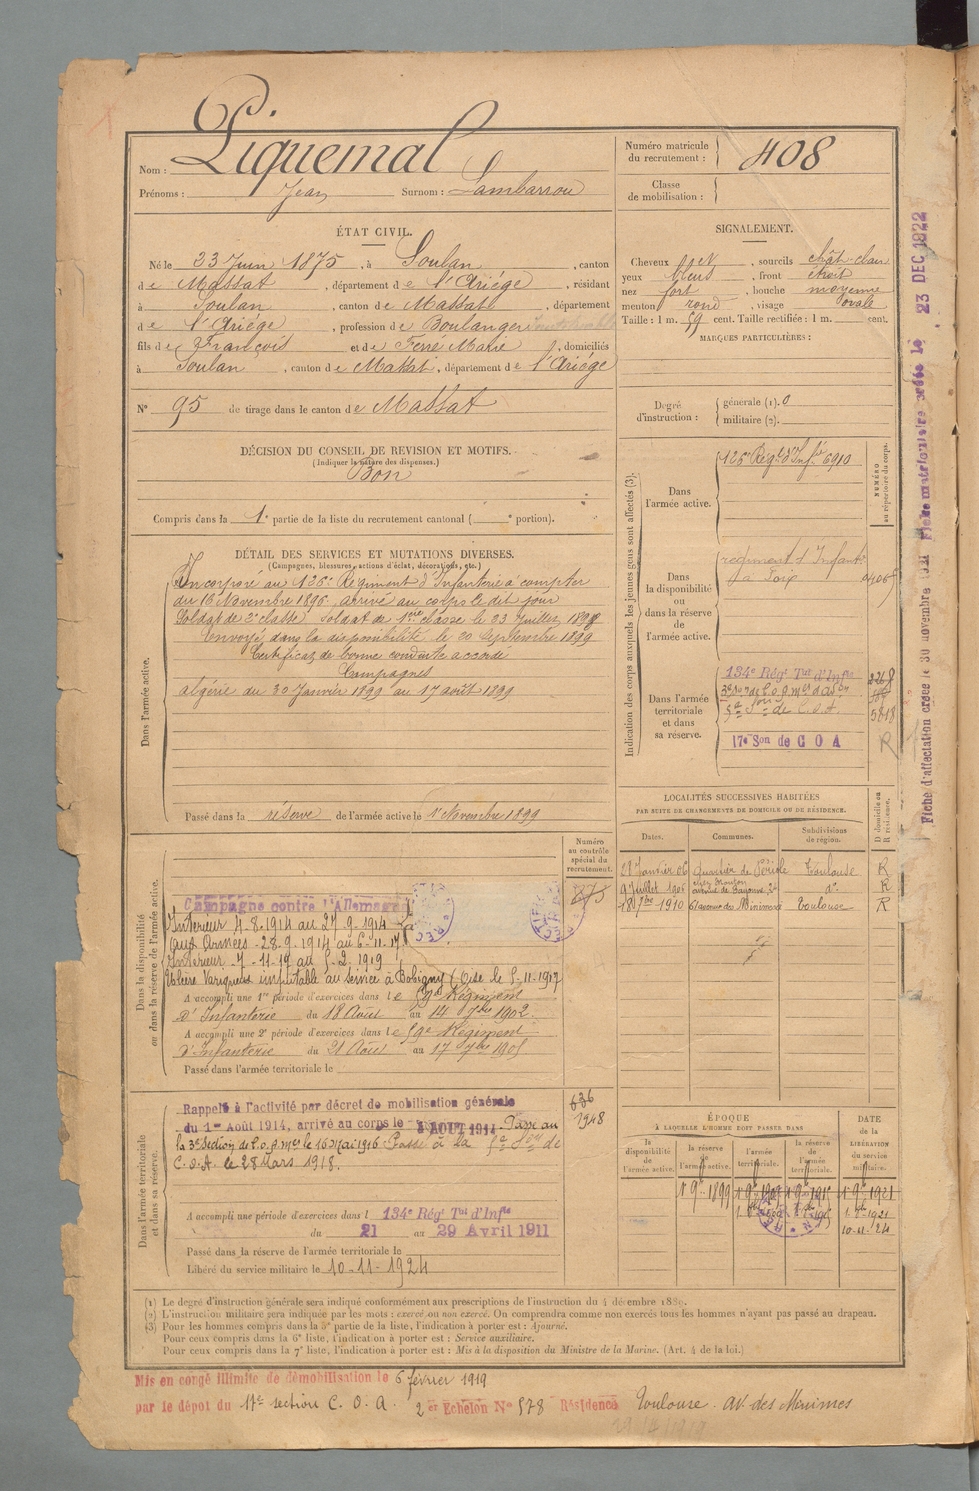 Nom : Piquemal
Prénoms : Jean Surnom : Lambarrou
Numéro matricule du recrutement : 408
Classe de mobilisation :
ÉTAT CIVIL.
Né le 23 Juin 1875, à Soulan, canton
de Massat, département de l'Ariége, résidant
à Soulan, canton de Massat, département
de l'Ariége, profession de Boulanger
fils de François et de Ferré Marie, domiciliés
à Soulan, canton de Massat, département de l'Ariége
N° 95 de tirage dans le canton de Massat
SIGNALEMENT.
Cheveux , sourcils chât-clair
yeux bleus, front étroit
nez fort, bouche moyenne
menton rond, visage ovale
Taille : 1 m. 59 cent. Taille rectifiée : 1 m. cent.
MARQUES PARTICULIÈRES :
Degré d'instruction : générale (1). 0
militaire (2).
DÉCISION DU CONSEIL DE REVISION ET MOTIFS.
(Indiquer la nature des dispenses.)
Bon
Compris dans la 1e partie de la liste du recrutement cantonal ( e portion).
DÉTAIL DES SERVICES ET MUTATIONS DIVERSES.
(Campagnes, blessures, actions d'éclat, décorations, etc.)
Dans l'armée active.
Incorporé au 126e Régiment d'Infanterie à compter
du 16 Novembre 1896, arrivé au corps le dit jour
Soldat de 2e classe Soldat de 1ère classe le 23 Juillet 1898
Envoyé dans la disponibilité le 20 Septembre 1899
Certificat de bonne conduite accordé
Campagnes
algérie du 30 Janvier 1899 au 17 août 1899
Passé dans la réserve de l'armée active le 1er Novembre 1899
Indication des corps auxquels les jeunes gens sont affectés (3).
NUMÉRO au répertoire du corps.
Dans l'armée active.
126e Régt d'Infie 6910
Dans la disponibilité ou dans la réserve de l'armée active.
régiment d'Infanterie
à Foix
Dans l'armée territoriale et dans sa réserve.
134e Régt Tal d'Infie
5818
17e Son de C O A
R
LOCALITÉS SUCCESSIVES HABITÉES
PAR SUITE DE CHANGEMENTS DE DOMICILE OU DE RÉSIDENCE.
Dates. Communes. Subdivisions de région. D domicile ou R résidence.
Janvier 06 Toulouse R
9 Juillet 1906 avenue de Bayonne do R
18 7bre 1910 61 avenue des Minimes Toulouse R
Dans la disponibilité ou dans la réserve de l'armée active.
Numéro au contrôle spécial du recrutement.
Campagne contre l'Allemagne
Intérieur 4-8-1914 au 27-9-1914
aux Armées -28-9-1914 au 6-11-17
Intérieur -7-11-17 au 5-2-1919
Ulcère Variqueux imputable au service à Bobigny (Oise le 5-11-1917
A accompli une 1re période d'exercices dans le 59e Régiment
d'Infanterie du 18 Août au 14 7bre 1902.
A accompli une 2e période d'exercices dans le 59e Régiment
d'Infanterie du 21 Août au 17 7bre 1905
Passé dans l'armée territoriale le
Dans l'armée territoriale et dans sa réserve.
636
1948
Rappelé à l'activité par décret de mobilisation générale
du 1er Août 1914, arrivé au corps le 4 AOUT 1914. Passé au
la 3e Section de C.O.A. Mes le 16 Mai 1916 Passé à la Son de
C.O.A. le 28 Mars 1918.
A accompli une période d'exercices dans l 134e Régt Tal d'Infie
du 21 au 29 Avril 1911
Passé dans la réserve de l'armée territoriale le
Libéré du service militaire le 10-11-1924
ÉPOQUE
À LAQUELLE L'HOMME DOIT PASSER DANS
DATE de la LIBÉRATION du service militaire.
la disponibilité de l'armée active. la réserve de l'armée active. l'armée territoriale. la réserve de l'armée territoriale.
1er 9bre 1899 1er 9bre 1921
10-11-24
(1) Le degré d'instruction générale sera indiqué conformément aux prescriptions de l'instruction du 4 décembre 1889.
(2) L'instruction militaire sera indiquée par les mots : exercé ou non exercé. On comprendra comme non exercés tous les hommes n'ayant pas passé au drapeau.
(3) Pour les hommes compris dans la 5e partie de la liste, l'indication à porter est : Ajourné.
Pour ceux compris dans la 6e liste, l'indication à porter est : Service auxiliaire.
Pour ceux compris dans la 7e liste, l'indication à porter est : Mis à la disposition du Ministre de la Marine. (Art. 4 de la loi.)
Mis en congé illimité de démobilisation le 6 février 1919
par le dépot du 17e section C. O. A. 2 er Echelon N° 578 Résidence Toulouse. av. des Minimes
Fiche d'affectation créée le 30 novembre 1921 Fiche matriculaire créée le 23 DEC 1922